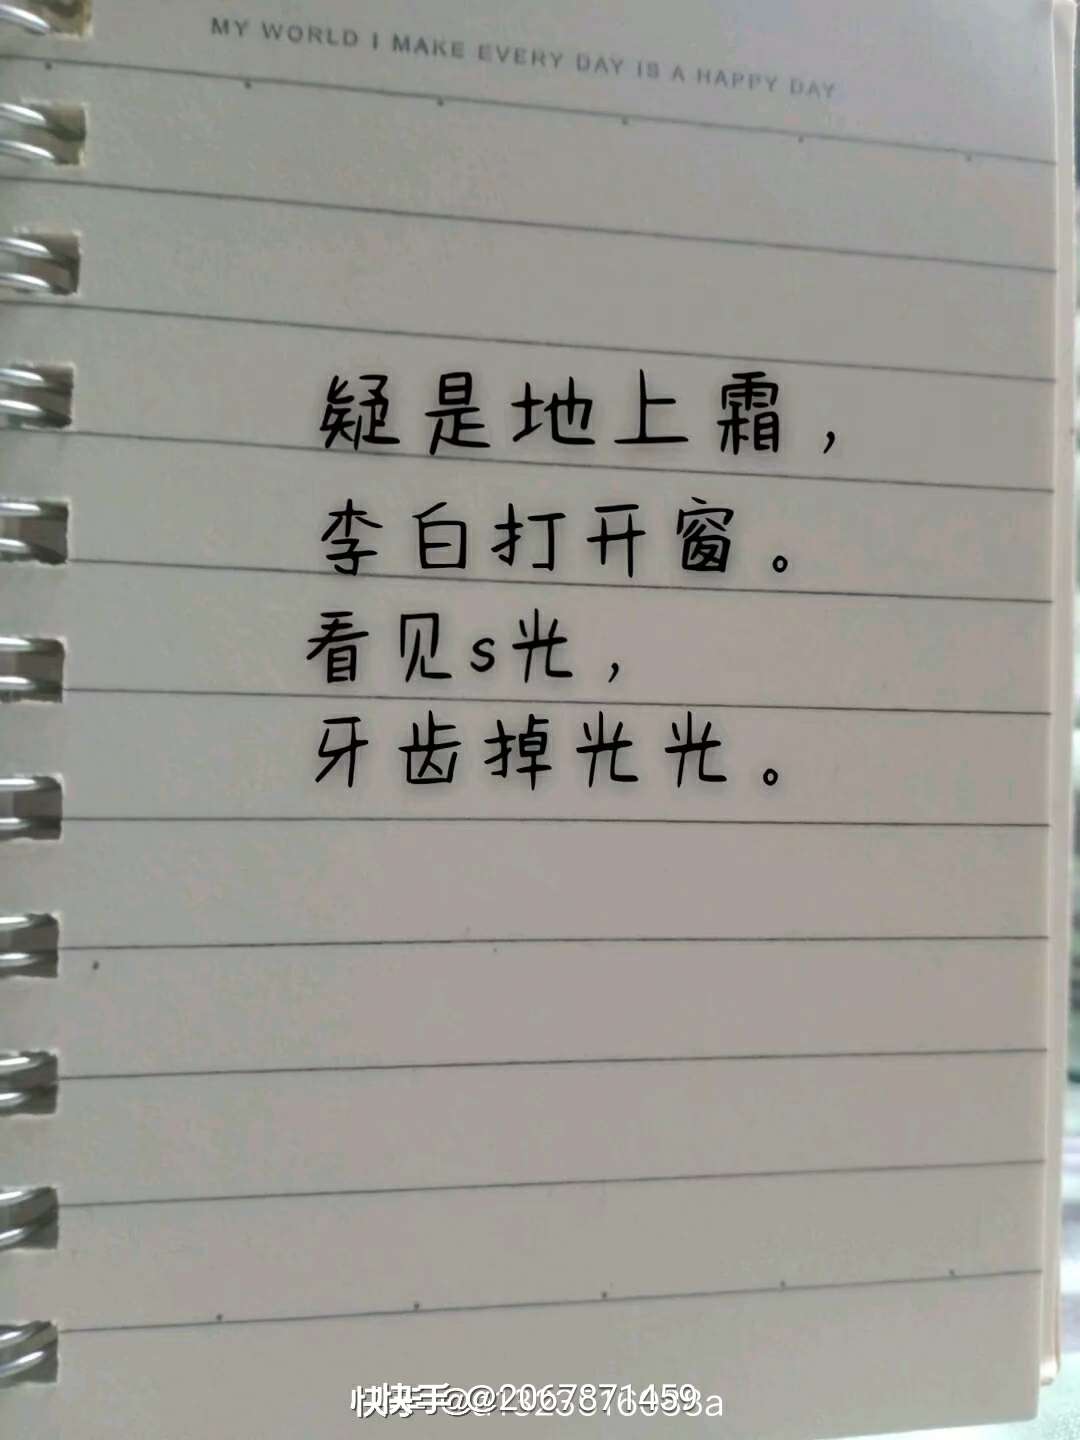 MY WORLD I MAKE EVERY DAY IS A HAPPY DAY
疑是地上霜，
李白打开窗。
看见s光，
牙齿掉光光。
快手 @2067871459